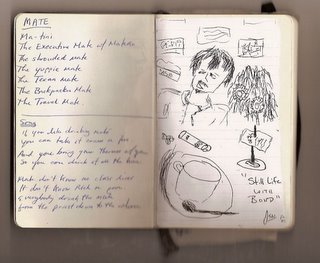 MATE
Ma-tini
The Executive Mate of Matadors
The shrouded mate
The yuppie mate
The Texan Mate
The Backpacker Mate
The Travel Mate
Song
If you like drinking mate
You can take it
And you bring your Thermos
So you can drink it all the
Mate don't know no class lines
It don't know Rich or poor
Everybody drinks the mate
From the priest down to the whore
"Still Life
with
Boyd"